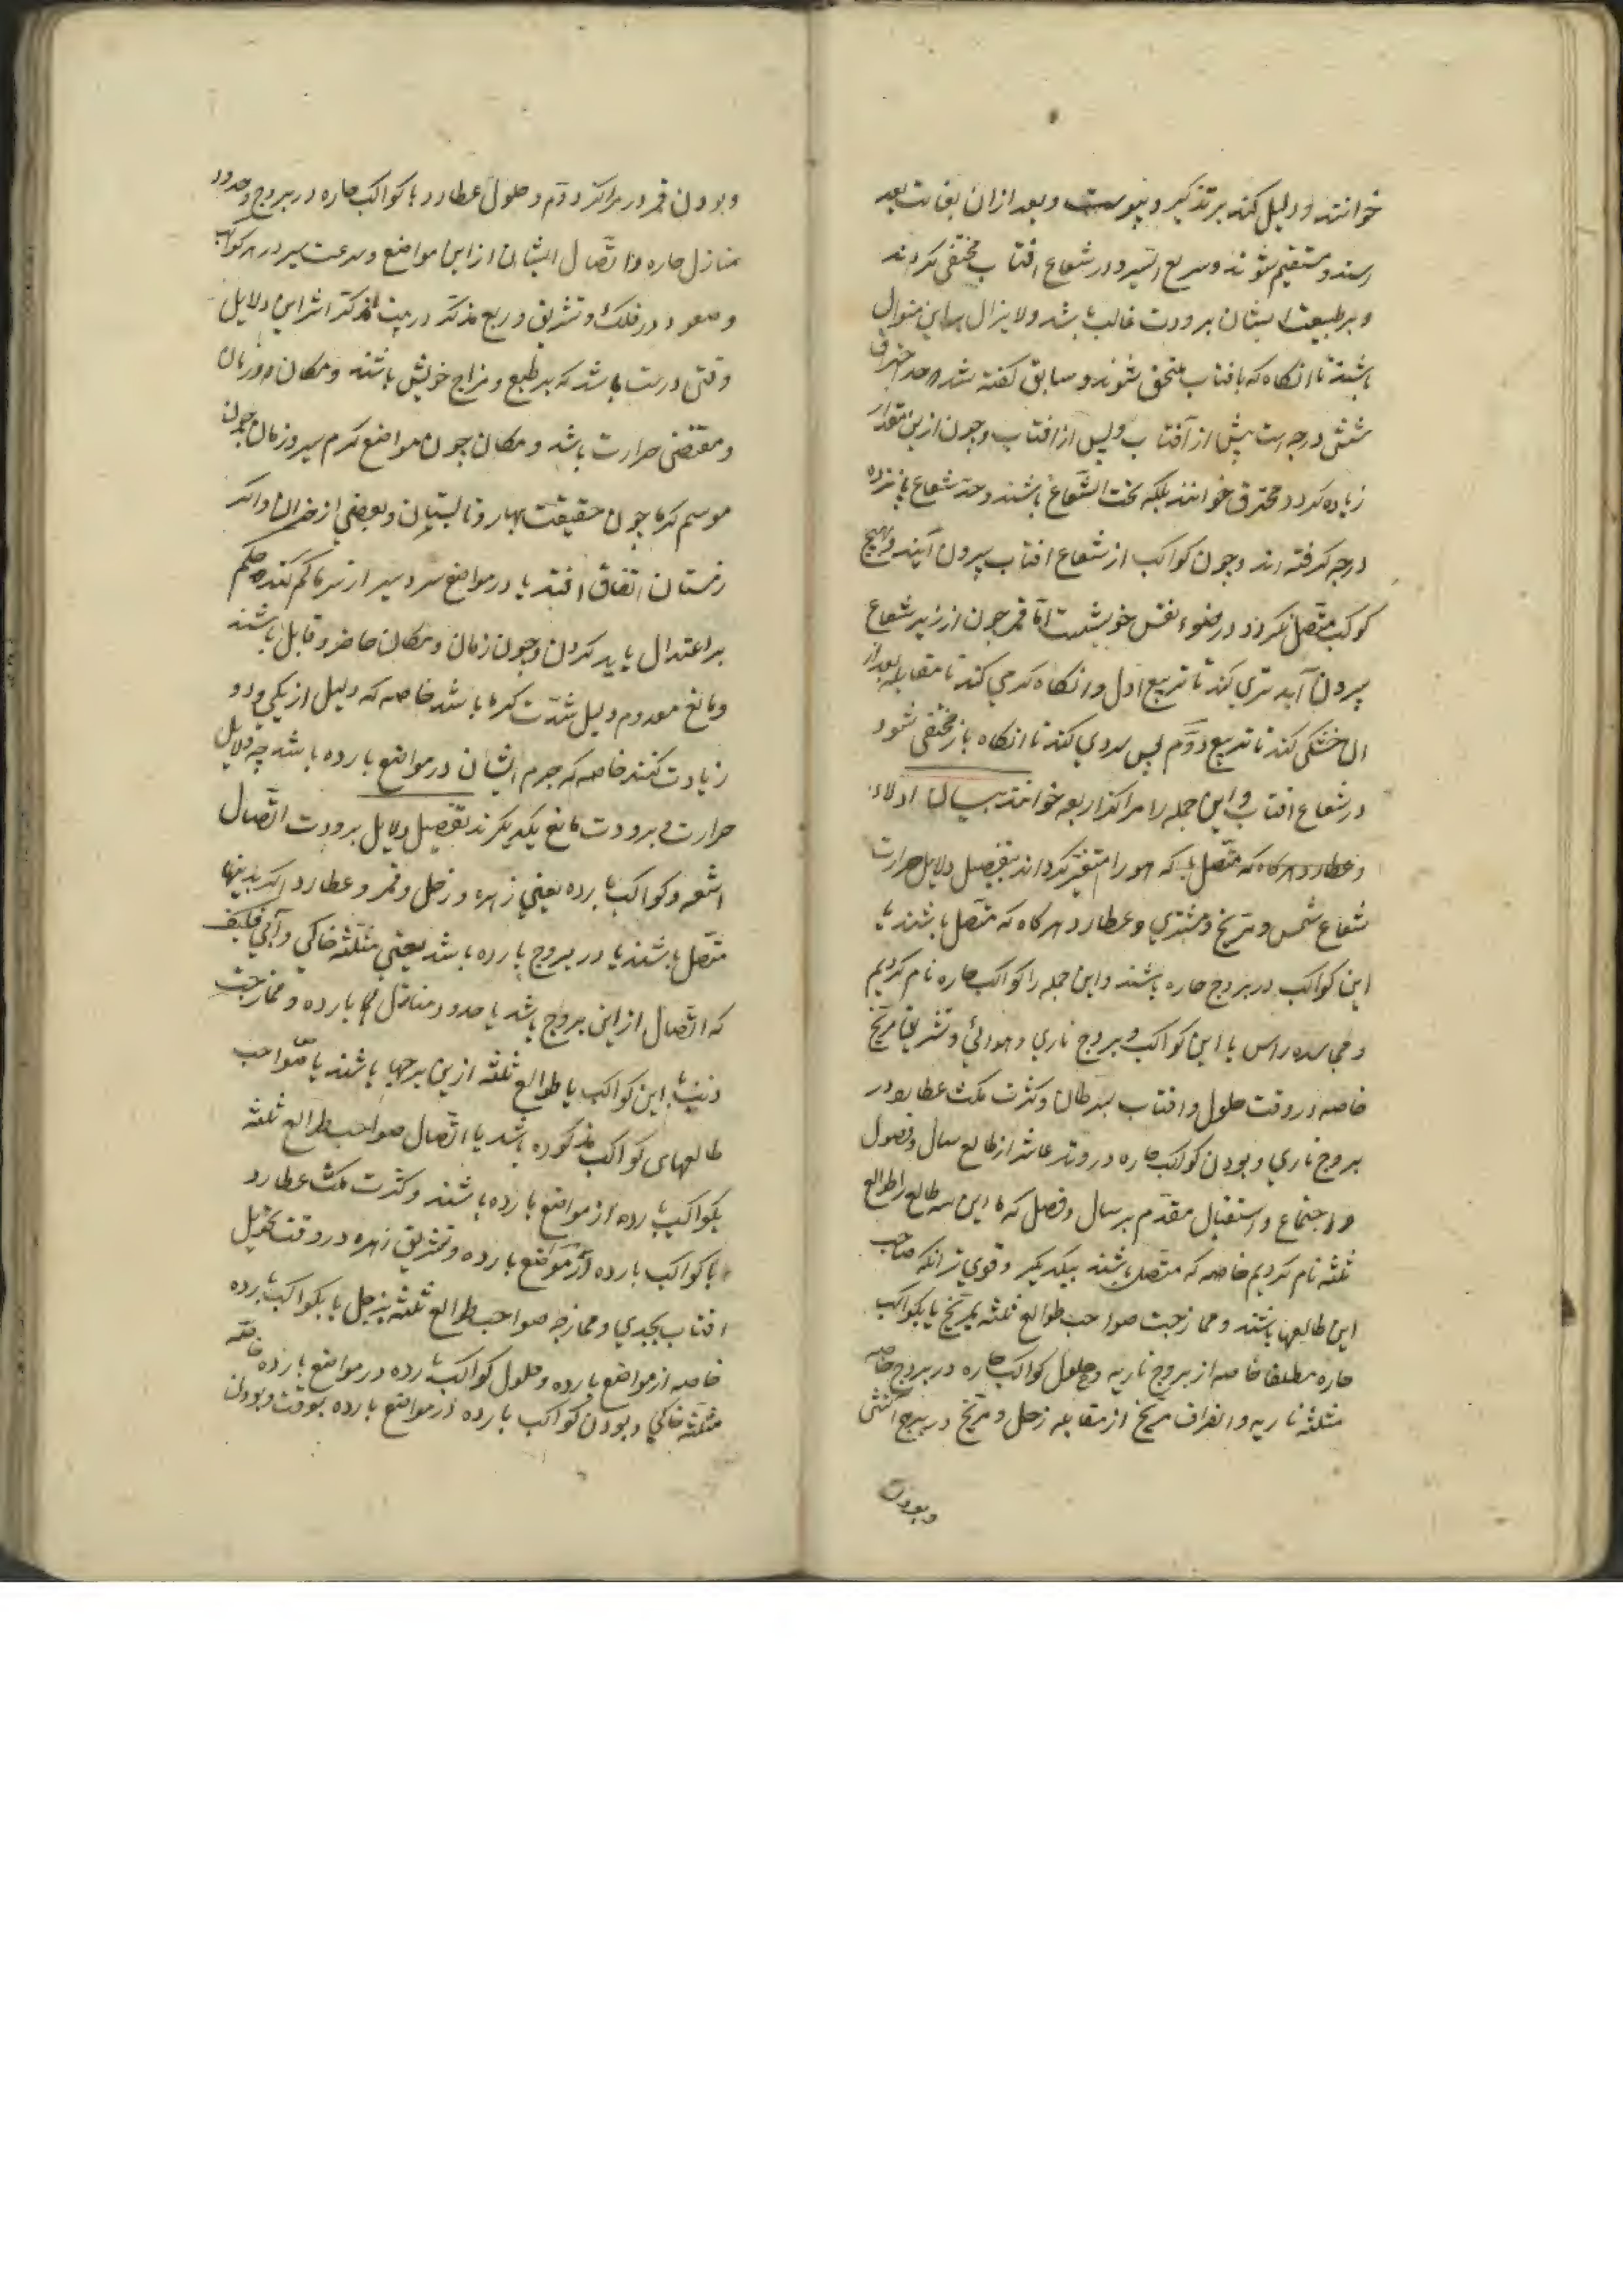 خوانند و دلیل کند بر تذکیر و یبوست و بعد ازان بغایت بعد
رسند و مستقیم شوند و سریع السیر و در شعاع افتاب مختفی کردند
و بر طبیعت ایشان برودت غالب باشد و لا یزال براین منوال
باشند تا انکاه که بافتاب ملحق شوند و سابق کفته شد که حد احتراق
شش درجه است پیش از آفتاب و پس از افتاب و چون ازین مقدار
زیاده کردد محترق خوانند بلکه تحت الشعاع باشند و حد شعاع پانزده
درجه کرفته اند و چون کواکب از شعاع افتاب بیرون آیند و بهیچ
کوکب متصل نکردد در ضوء نفس خویشست اما قمر چون از زیر شعاع
بیرون آید تری کند تا تربیع اول و انکاه کرمی کند تا مقابله بعد از
ان خشکی کند تا تربیع دوم پس سردی کند تا انکاه باز مختفی شود
در شعاع افتاب و این جمله را مراکز اربعه خوانند
و عطارد هرکاه که متصل که هوا را متغیر کرداند تفصیل دلایل حرارت
شعاع شمس و مریخ و مشتری و عطارد هرکاه که متصل باشند با
این کواکب در بروج حاره باشند و این جمله را کواکب حاره نام کردیم
و مجاسده راس با این کواکب و بروج ناری و هوائی و تشریق مریخ
خاصه در وقت حلول افتاب بسرطان و کثرت مکث عطارد در
بروج ناری و بودن کواکب حاره در وتد عاشر از طالع سال و فصول
و اجتماع و استقبال مقدم بر سال و فصل که ما این سه طالع را طوالع
ثلثه نام کردیم خاصه که متصل باشند بیکدیکر و قوی تر انکه صاحب
این طالعها باشند و ممازجت صواحب طوالع ثلثه بمریخ یا بکواکب
حاره مطلقا خاصه از بروج ناریه و حلول کواکب حاره در بروج حاره خاصه
مثلثه ناریه و انصراف مریخ از مقابله زحل و مریخ در برج آتشی
وبودن
وبودن قمر در مراکز دوم و حلول عطارد با کواکب حاره در بروج و حدود
منازل حاره و اتصال ایشان از این مواضع و سرعت سیر در هر کواکب
و صعود در فلک و تشریق و ربع مذکر در بیت مذکر اثر این دلایل
وقتی درست باشد که بر طبع و مزاج خویش باشند و مکان و زمان
و مقتضی حرارت باشد و مکان چون مواضع کرم سیر و زمان چون
موسم کرما چون حقیقت بهار و تابستان و بعضی از خزان و اکر
زمستان اتفاق افتد یا در مواضع سردسیر از سرما کم کند حکم
بر اعتدال باید کردن و چون زمان و مکان حاضر و قابل باشند
و مانع معدوم دلیل شدت کرما باشد خاصه که دلیل از یکی و دو
زیادت کنند خاصه که جرم ایشان در مواضع بارده باشد چه دلایل
حرارت و برودت مانع یکدیکرند تفصیل دلایل برودت اتصال
اشعه و کواکب بارده یعنی زهره و زحل و قمر و عطارد اکر بدینها
متصل باشند یا در بروج بارده باشد یعنی مثلثه خاکی و آبی فکیف
که اتصال از این بروج باشد یا حدود منازل بارده و ممازجت
ذنب با این کواکب یا طوالع ثلثه ازین برجها باشند یا صواحب
طالعهای کواکب مذکوره باشد یا اتصال صواحب طوالع ثلثه
بکواکب بارده از مواضع بارده باشند و کثرت مکث عطارد
با کواکب بارده از مواضع بارده و تشریق زهره در وقت تحویل
افتاب بجدی و ممازجه صواحب طوالع ثلثه بزحل یا بکواکب بارده
خاصه از مواضع بارده و حلول کواکب بارده در مواضع بارده خاصه
مثلثه خاکی و بودن کواکب بارده از مواضع بارده بوقت و بودن